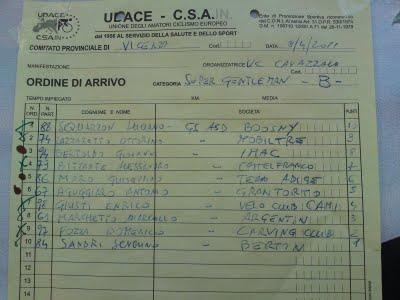 UDACE - C.S.A.IN.
UNIONE DEGLI AMATORI CICLISMO EUROPEO
dal 1956 AL SERVIZIO DELLA SALUTE E DELLO SPORT
UDACE
CSAIN
COMITATO PROVINCIALE DI VICENZA
Cod.
DATA 3/4/2011
MANIFESTAZIONE
ORGANIZZAZIONE UC CAVAZZALE
ORDINE DI ARRIVO
CATEGORIA SUPER GENTLEMAN - B -
TEMPO IMPIEGATO
KM
MEDIA
N. ORD. N. PART. COGNOME e NOME SOCIETÀ PUNTI
1 88 LUCIANO - GS ASD BOOSNY
2 74 LAZZAROTTO OTTORINO - MOBILTRE
3 94 BERTOLDO GIULIANO - IMAC
4 73 ALESSANDRO - CASTELFRANCO 7
5 86 MORO GUGLIELMO - TEAM ADIGE 6
6 67 RUGGIERO ANTONIO - GRANTORTO 5
7 78 GIUSTI ENRICO - VELO CLUB CAMI 4
8 61 MARCHETTO MARCELLO - ARGENTIN 3
9 97 POZZA DOMENICO - CARVING CLUB 2
10 84 SANDRI - BERTIN 1
11
12
13
14